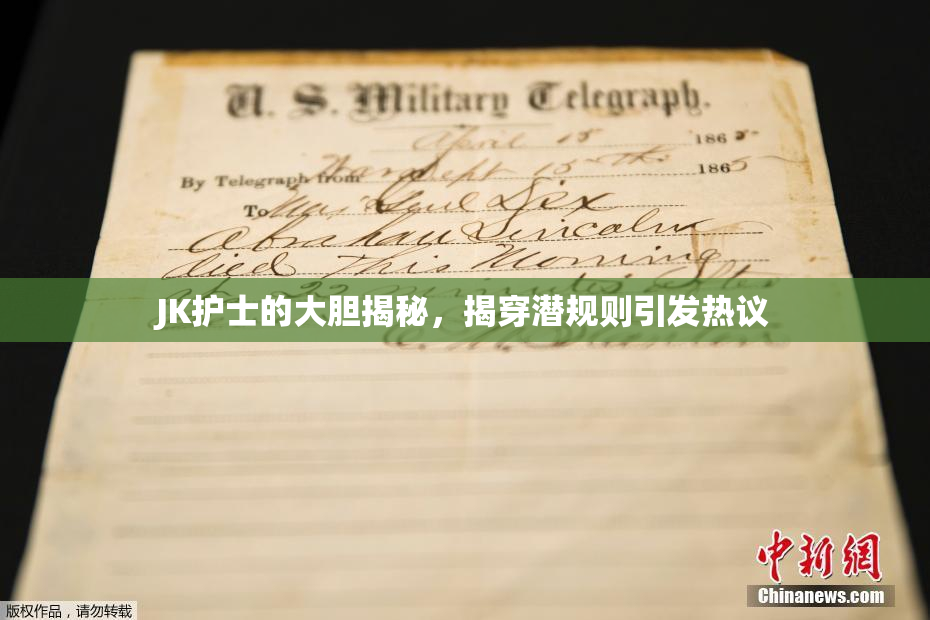 U. S. Military Telegraph.
April 15 1865
By Telegraph from War Dept 15th 1865
To Maj Genl Dix
Abraham Lincoln
died This Morning
at 22 minutes after
JK护士的大胆揭秘，揭穿潜规则引发热议
E. M. Stanton
中新网
Chinanews.com
版权作品，请勿转载